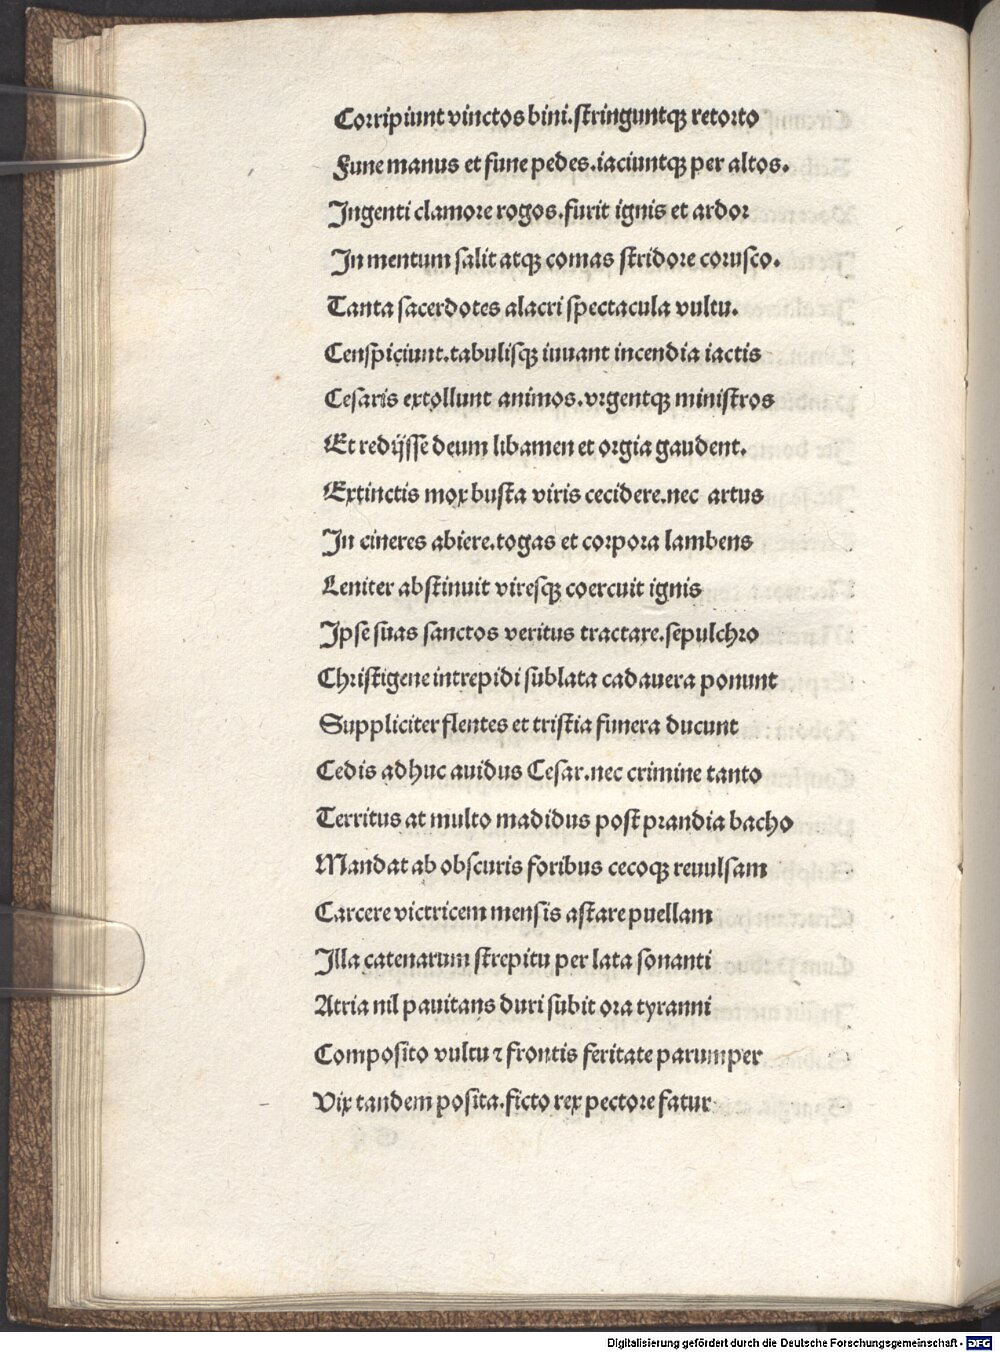 Corripiunt vinctos bini.stringuntqꝫ retorto
Fune manus et fune pedes.iaciuntqꝫ per altos.
Ingenti clamore rogos.furit ignis et ardor
In mentum salit atqꝫ comas stridore corusco.
Tanta sacerdotes alacri spectacula vultu.
Censpiciunt.tabulisqꝫ iuuant incendia iactis
Cesaris extollunt animos.vrgentqꝫ ministros
Et redijsse deum libamen et orgia gaudent.
Extinctis mox busta viris cecidere.nec artus
In cineres abiere.togas et corpora lambens
Leniter abstinuit viresqꝫ coercuit ignis
Ipse suas sanctos veritus tractare.sepulchro
Christigene intrepidi sublata cadauera ponunt
Suppliciter flentes et tristia funera ducunt
Cedis adhuc auidus Cesar.nec crimine tanto
Territus at multo madidus post prandia bacho
Mandat ab obscuris foribus cecoqꝫ reuulsam
Carcere victricem mensis astare puellam
Illa catenarum strepitu per lata sonanti
Atria nil pauitans duri subit ora tyranni
Composito vultu ⁊ frontis feritate parumper
Vix tandem posita.ficto rex pectore fatur
Digitalisierung gefördert durch die Deutsche Forschungsgemeinschaft - DFG